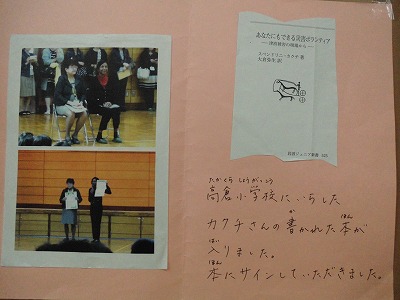 あなたにもできる災害ボランティア
―津波被害の現場から―
スベンドリニ・カクチ 著
大倉弥生 訳
岩波ジュニア新書 525
たかくらしょうがっこう
高倉小学校にいらした
か ほん
カクチさんの書かれた本が
はい
入りました。
ほん
本にサインしていただきました。